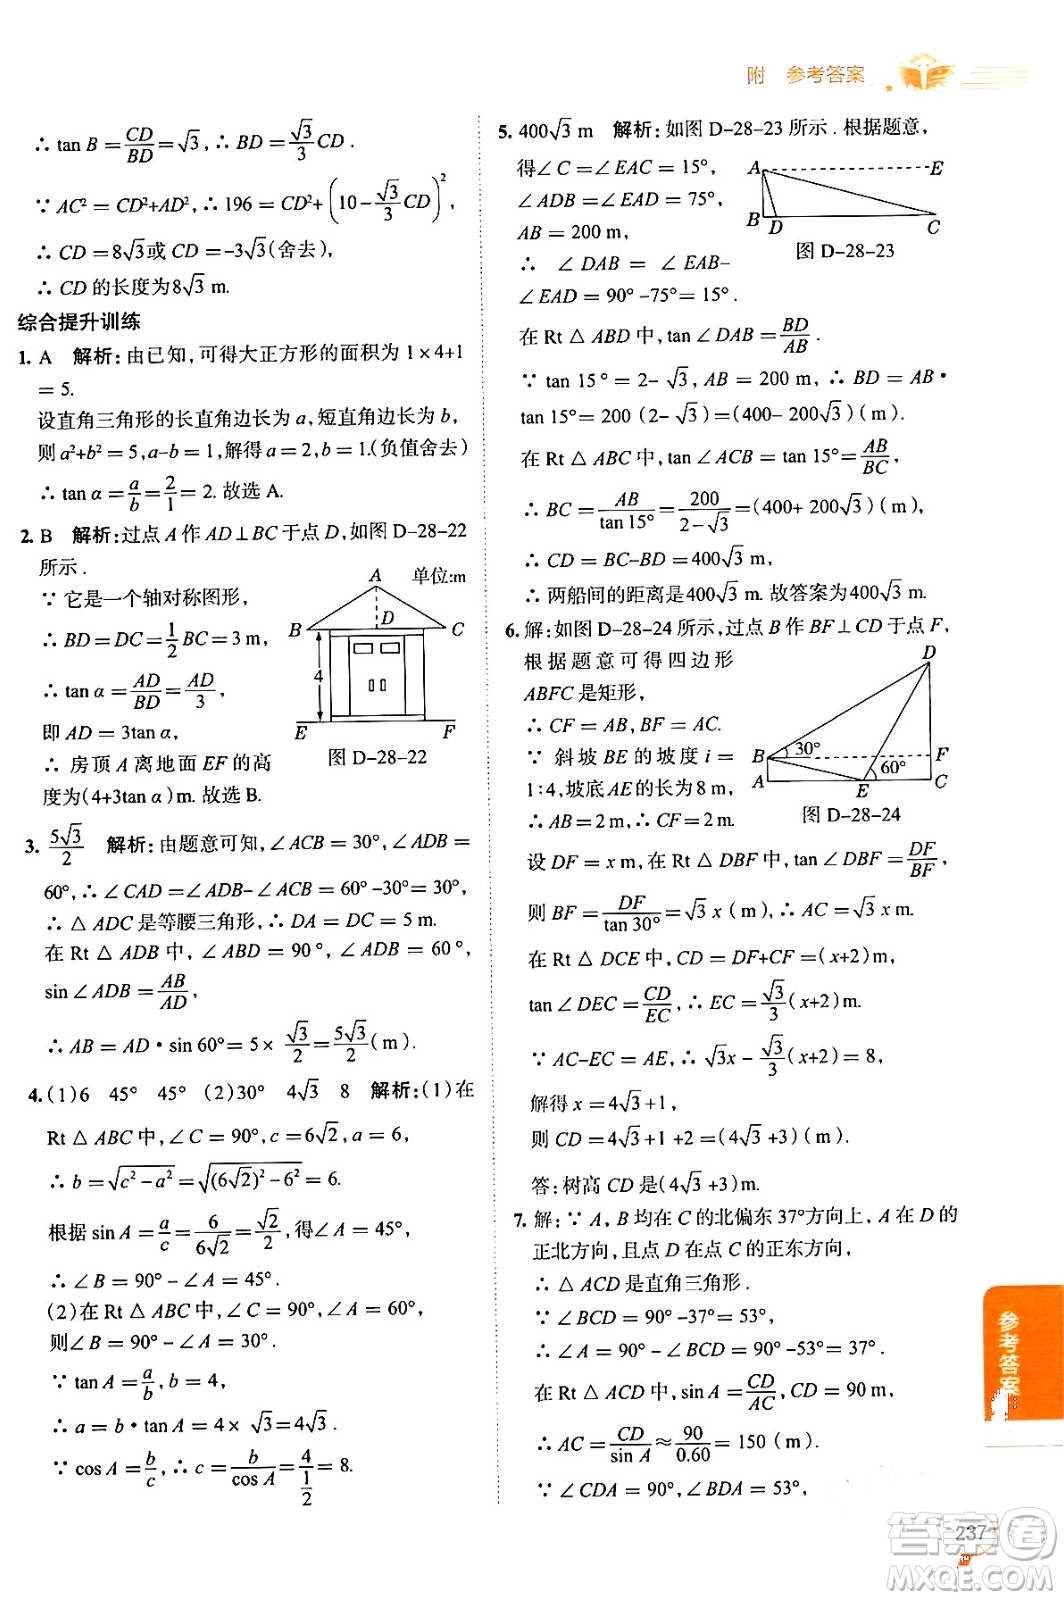 附 参考答案
∴ tan B = CD/BD = √3, ∴ BD = (√3/3)CD .
∵ AC² = CD²+AD², ∴ 196 = CD²+(10-(√3/3)CD)²,
∴ CD = 8√3或 CD = -3√3(舍去),
∴ CD 的长度为8√3 m.
综合提升训练
1. A 解析:由已知,可得大正方形的面积为 1×4+1
= 5.
设直角三角形的长直角边长为 a,短直角边长为 b,
则 a²+b² = 5,a-b = 1,解得a = 2,b = 1.(负值舍去)
∴ tan α = a/b = 2/1 = 2. 故选 A.
2. B 解析:过点 A 作 AD⊥BC于点 D,如图 D-28-22
所示 .
∵ 它是一个轴对称图形,
∴ BD = DC = 1/2 BC = 3 m,
∴ tan α = AD/BD = AD/3 ,
即 AD = 3tan α,
∴ 房顶 A 离地面 EF 的高
度为(4+3tan α)m. 故选 B.
A 单位:m
B D C
4
E F
图 D-28-22
3. 5√3/2 解析:由题意可知,∠ACB = 30°,∠ADB =
60°,∴ ∠CAD = ∠ADB-∠ACB = 60° -30° = 30°,
∴ △ADC 是等腰三角形,∴ DA = DC = 5 m.
在 Rt △ ADB 中,∠ABD = 90°,∠ADB = 60°,
sin ∠ADB = AB/AD,
∴ AB = AD·sin 60° = 5× √3/2 = 5√3/2 (m).
4. (1)6 45° 45° (2)30° 4√3 8 解析:(1)在
Rt △ABC 中,∠C = 90°,c = 6√2,a = 6,
∴ b = √(c²-a²) = √((6√2)²-6²) = 6.
根据 sin A = a/c = 6/(6√2) = √2/2,得∠A = 45°,
∴ ∠B = 90° -∠A = 45°.
(2)在 Rt △ABC 中,∠C = 90°,∠A = 60°,
则∠B = 90° -∠A = 30°.
∵ tan A = a/b,
∴ a = b·tan A = 4× √3 = 4√3.
∵ cos A = b/c,∴ c = b/cos A = 4/(1/2) = 8.
5. 400√3 m 解析:如图 D-28-23 所示 . 根据题意,
得∠C = ∠EAC = 15°,
∠ADB = ∠EAD = 75°,
AB = 200 m,
∴ ∠DAB = ∠EAB-
∠EAD = 90° -75° = 15°.
A E
B D C
图 D-28-23
在 Rt △ABD 中,tan ∠DAB = BD/AB.
∵ tan 15° = 2- √3,AB = 200 m,∴ BD = AB·
tan 15°= 200 (2- √3)=(400- 200√3)(m).
在 Rt △ABC 中,tan ∠ACB = tan 15°= AB/BC,
∴ BC = AB/tan 15° = 200/(2-√3) =(400+ 200√3)m,
∴ CD = BC-BD = 400√3 m,
∴ 两船间的距离是400√3 m. 故答案为400√3 m.
6. 解:如图 D-28-24 所示,过点 B 作 BF⊥CD 于点 F,
根据题意可得四边形
ABFC 是矩形,
∴ CF = AB,BF = AC.
∵ 斜坡 BE 的坡度 i =
1:4,坡底 AE的长为 8 m,
∴ AB = 2 m,∴ CF = 2 m.
D
B 30° F
A 60° E C
图 D-28-24
设 DF = x m,在 Rt △DBF 中,tan ∠DBF = DF/BF,
则 BF = DF/tan 30° = √3 x (m),∴ AC = √3 x m.
在 Rt △DCE 中,CD = DF+CF = (x+2)m,
tan ∠DEC = CD/EC,∴ EC = √3/3 (x+2)m.
∵ AC-EC = AE,∴ √3x - √3/3 (x+2) = 8,
解得 x = 4√3+1,
则 CD = 4√3+1 +2 = (4√3 +3)(m).
答:树高 CD 是(4√3 +3)m.
7. 解:∵ A,B 均在 C 的北偏东 37°方向上,A 在 D 的
正北方向,且点 D 在点 C 的正东方向,
∴ △ACD 是直角三角形 .
∴ ∠BCD = 90° -37° = 53°,
∴ ∠A = 90° -∠BCD = 90° -53° = 37°.
在 Rt △ACD 中,sin A = CD/AC,CD = 90 m,
∴ AC = CD/sin A ≈ 90/0.60 = 150 (m).
∵ ∠CDA = 90°,∠BCD = 53°,
参考答案
237
答案卷